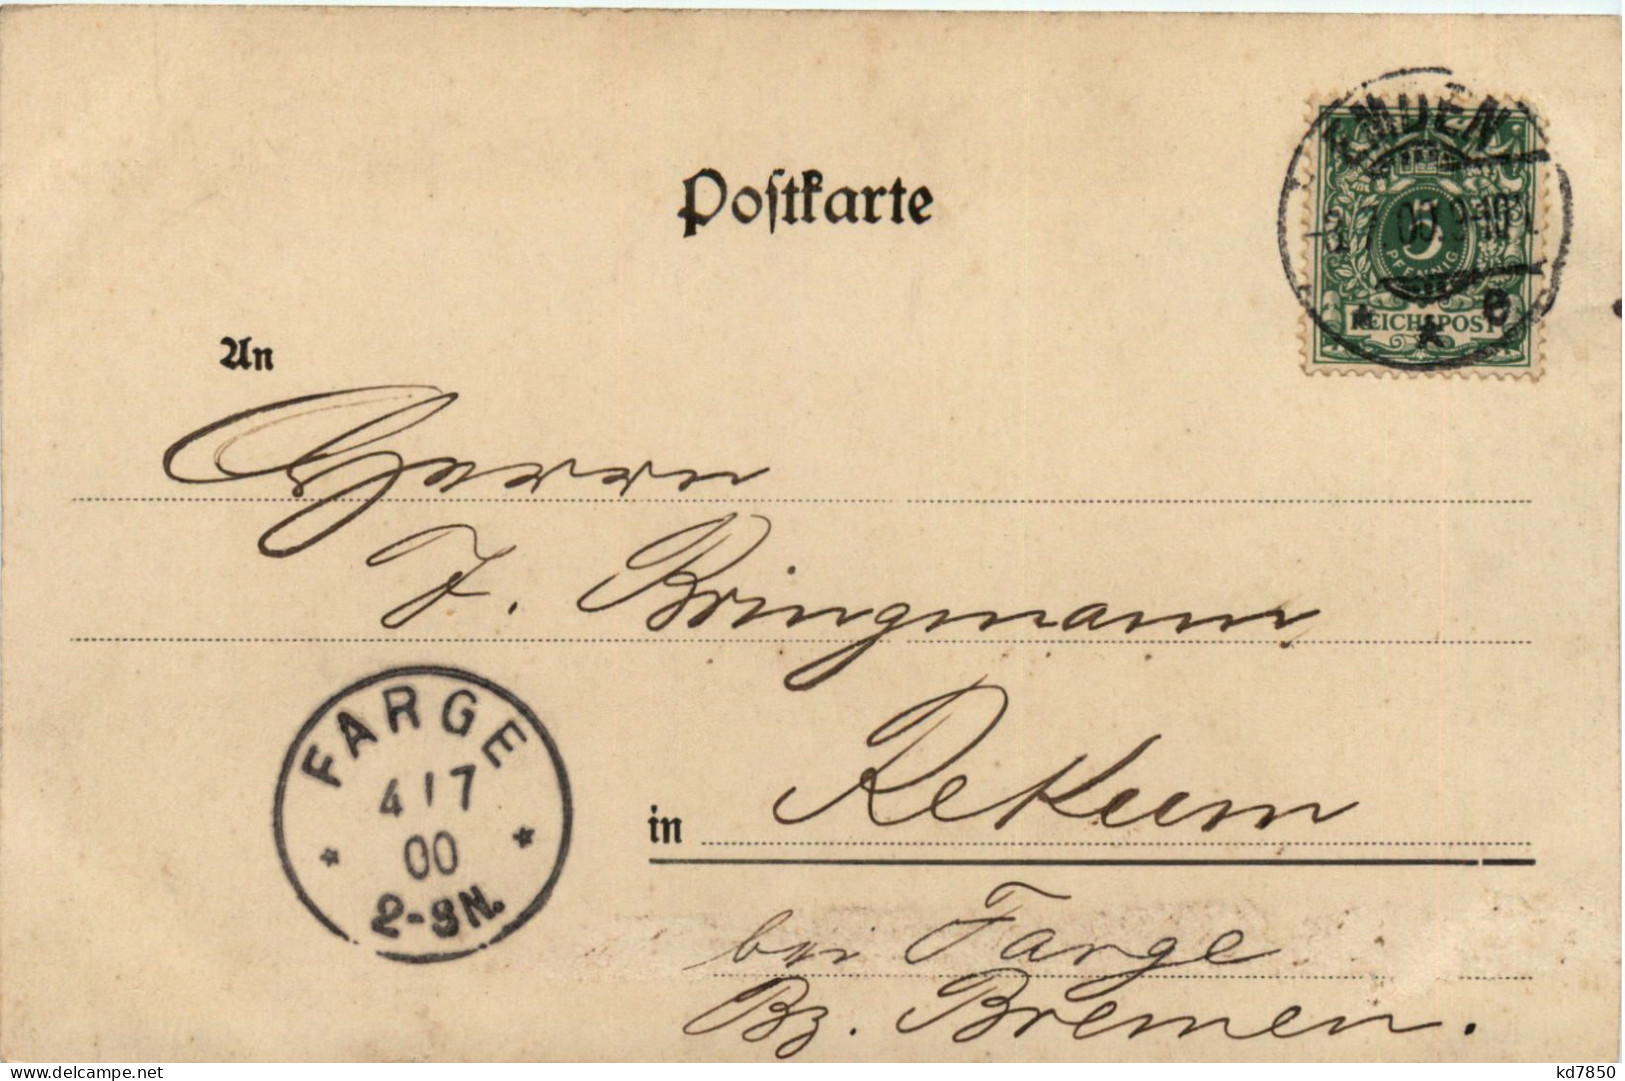 Postkarte
EMDEN
00.9-10
e
5
PFENNIG
REICHSPOST
An
Herrn
J. Bringmann
FARGE
4/7
00
2-3N.
in Rekum
bei Farge
Bz. Bremen.
kd7850